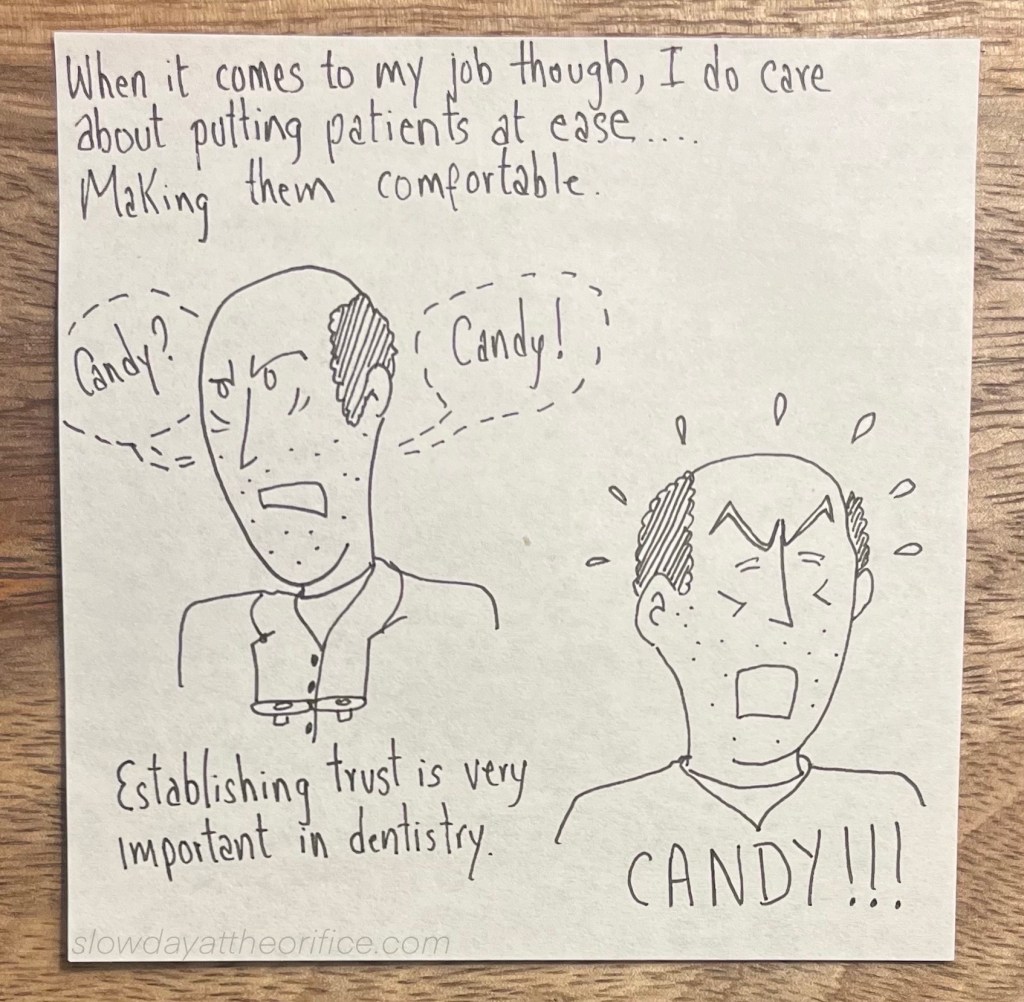 When it comes to my job though, I do care
about putting patients at ease....
Making them comfortable.
Candy?
Candy!
Establishing trust is very
important in dentistry.
CANDY!!!
slowdayattheorifice.com